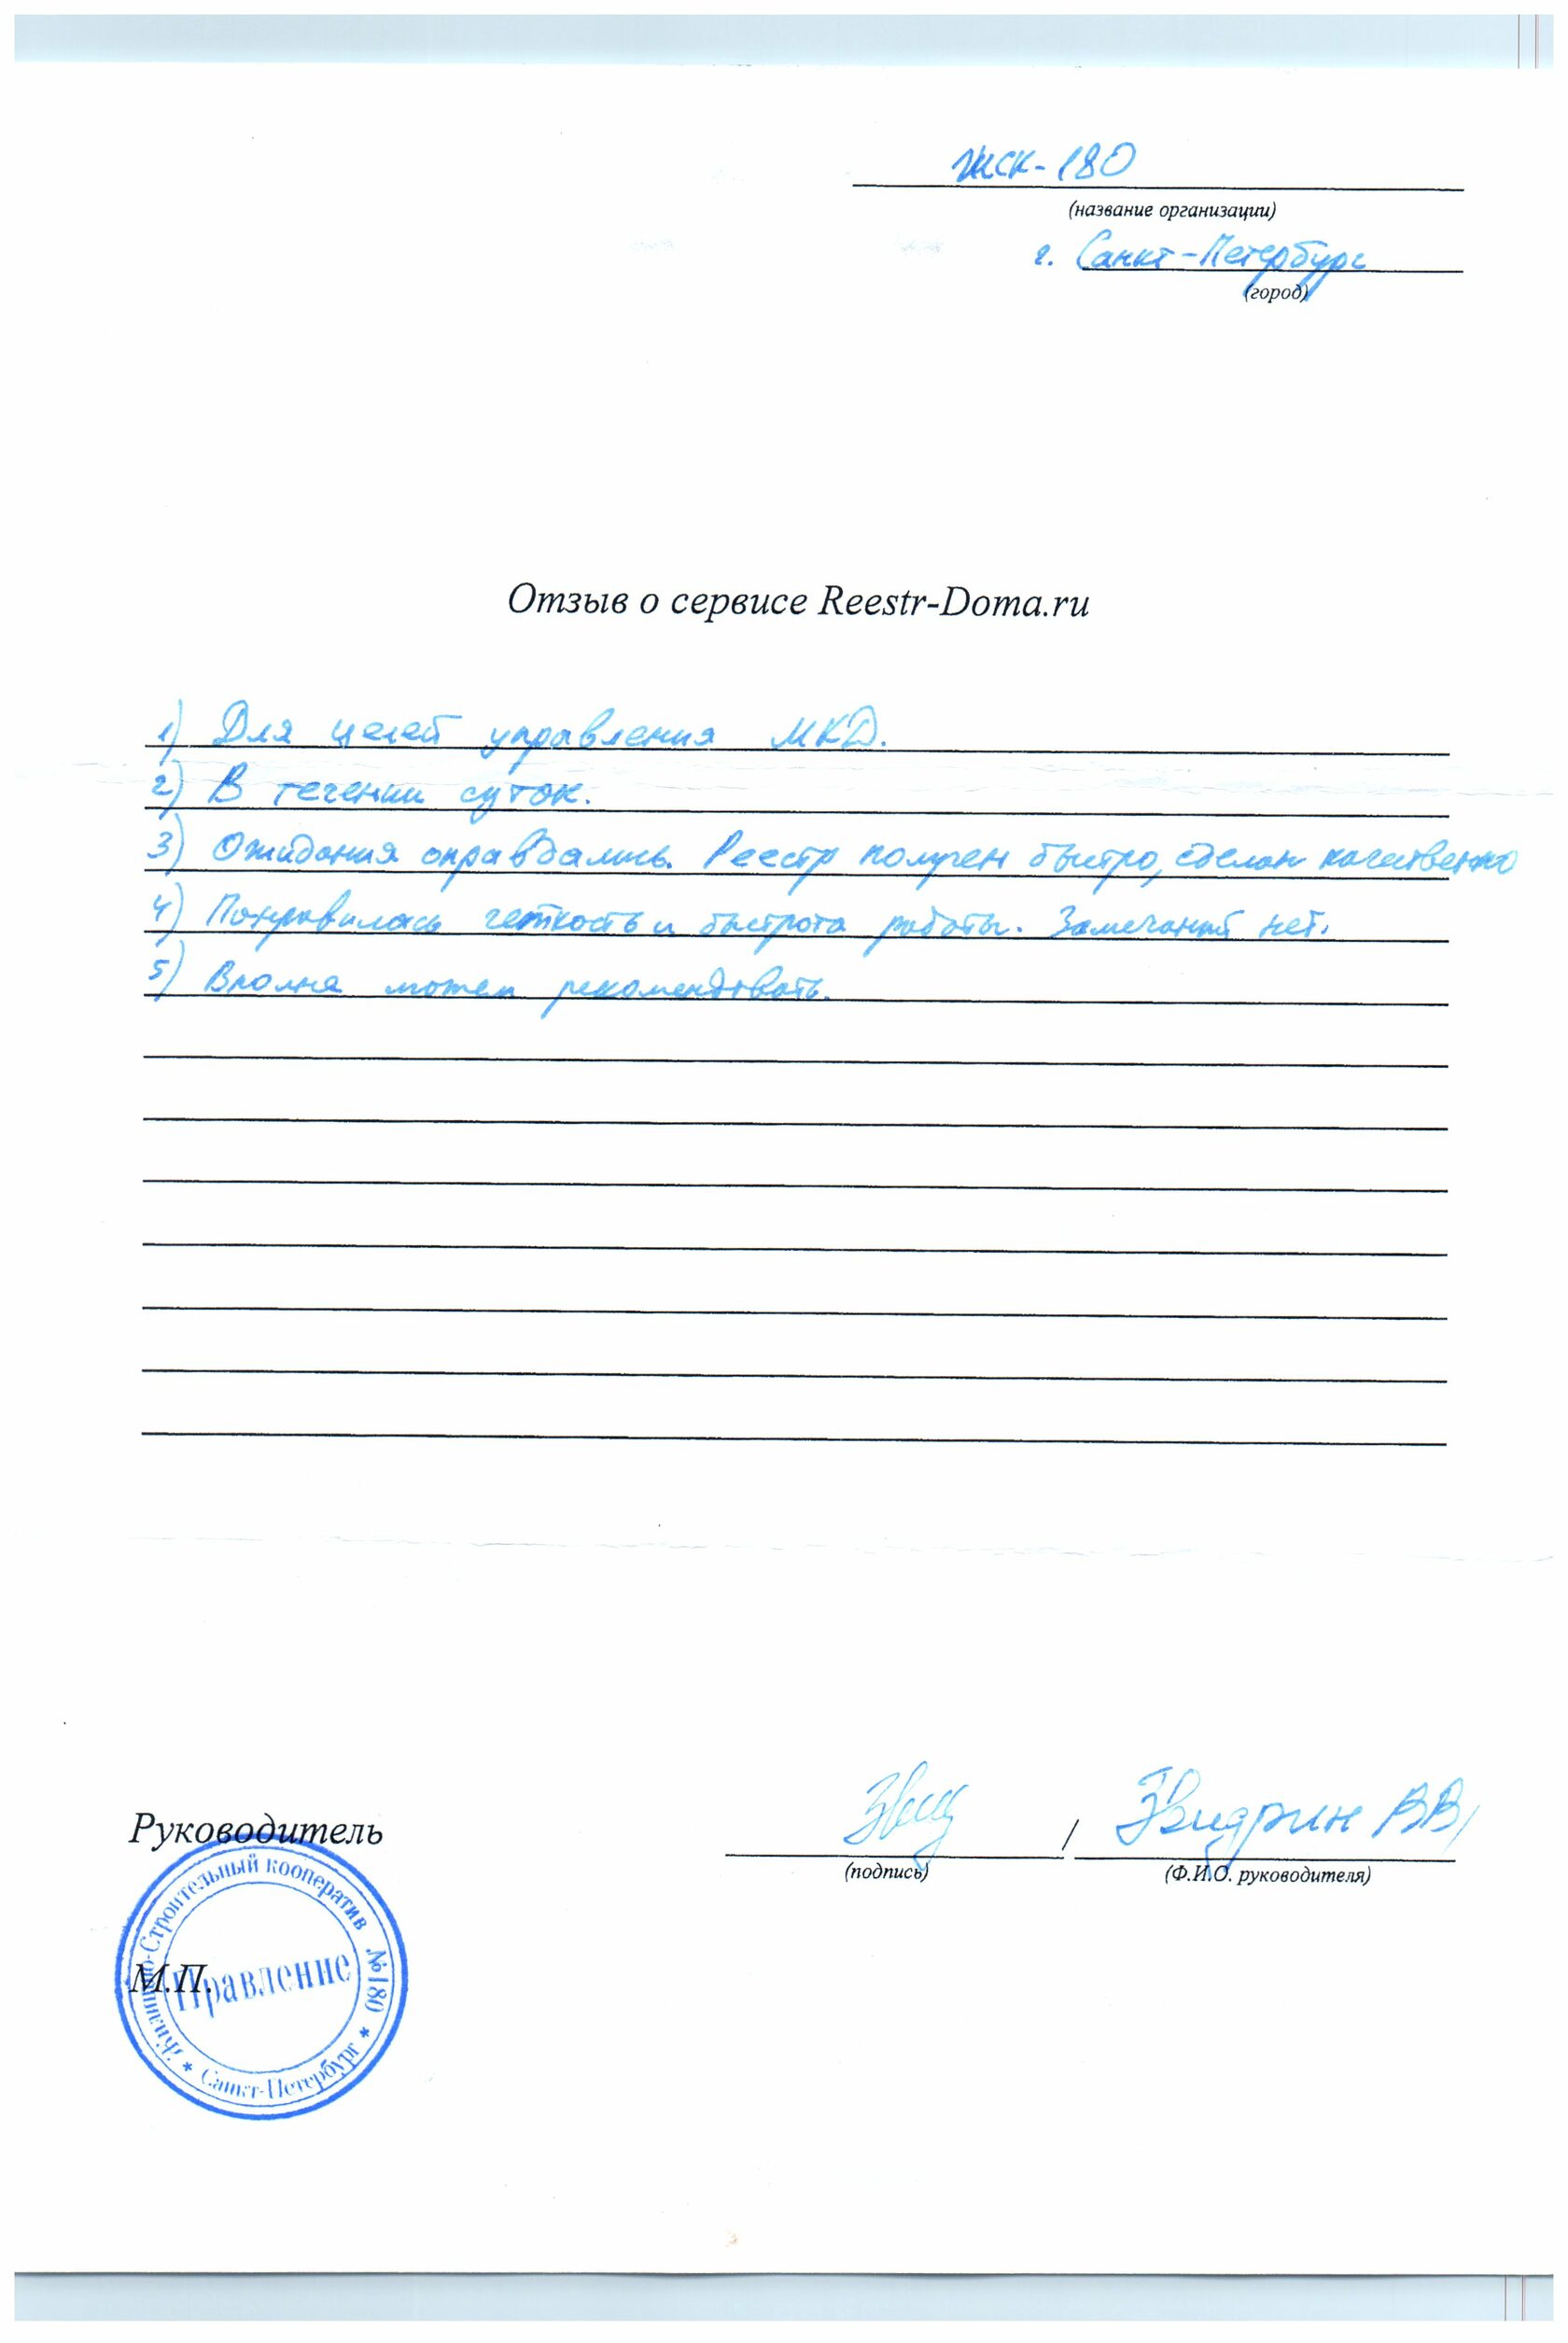 жск-180
(название организации)
г. Санкт-Петербург
(город)
Отзыв о сервисе Reestr-Doma.ru
1) Для целей управления МКД.
2) В течении суток.
3) Ожидания оправдались. Реестр получен быстро, сделан качественно
4) Понравилась четкость и быстрота работы. Замечаний нет.
5) Вполне можем рекомендовать.
Руководитель
/
(подпись)
(Ф.И.О. руководителя)
М.П.
Жилищно-Строительный кооператив №180
Правление
* Санкт-Петербург *